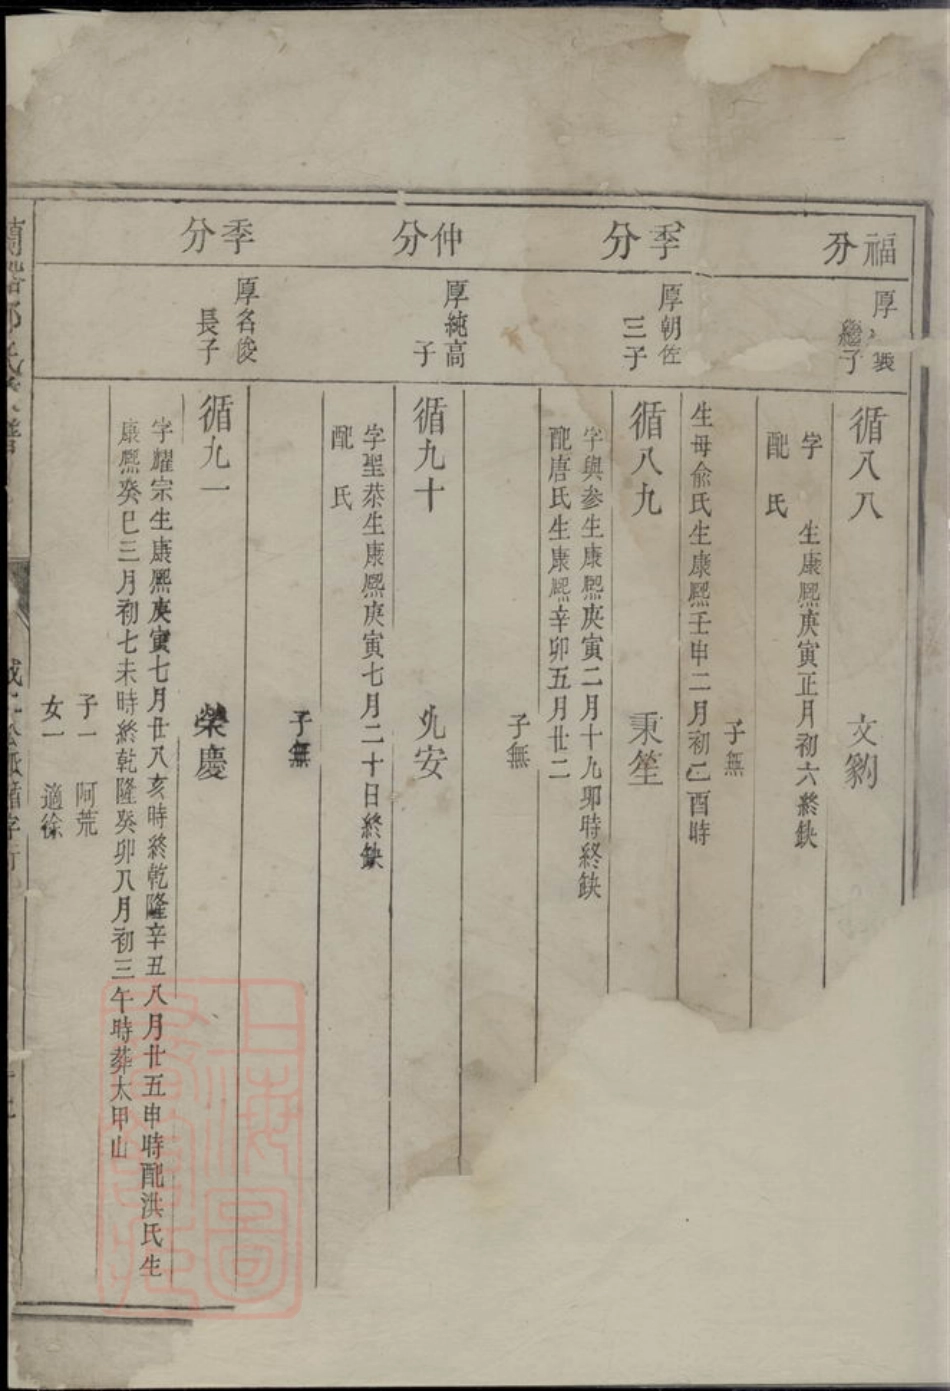 福分
厚裝
繼子
循八八
文
字
生康熙庚寅正月初六終缺
配氏
子無
生母俞氏生康熙壬申二月初二酉時
季分
厚朝佐
三子
循八九
秉笙
字與参生康熙庚寅二月十九卯時終缺
配唐氏生康熙辛卯五月廿二
子無
仲分
厚純高
子
循九十
允安
字聖恭生康熙庚寅七月二十日終缺
配氏
子無
季分
厚名俊
長子
循九一
榮慶
字耀宗生康熙庚寅七月廿八亥時終乾隆辛丑八月廿五申時配洪氏生
康熙癸巳三月初七未時終乾隆癸卯八月初三午時葬大甲山
子一 阿荒
女一 適徐
上海圖